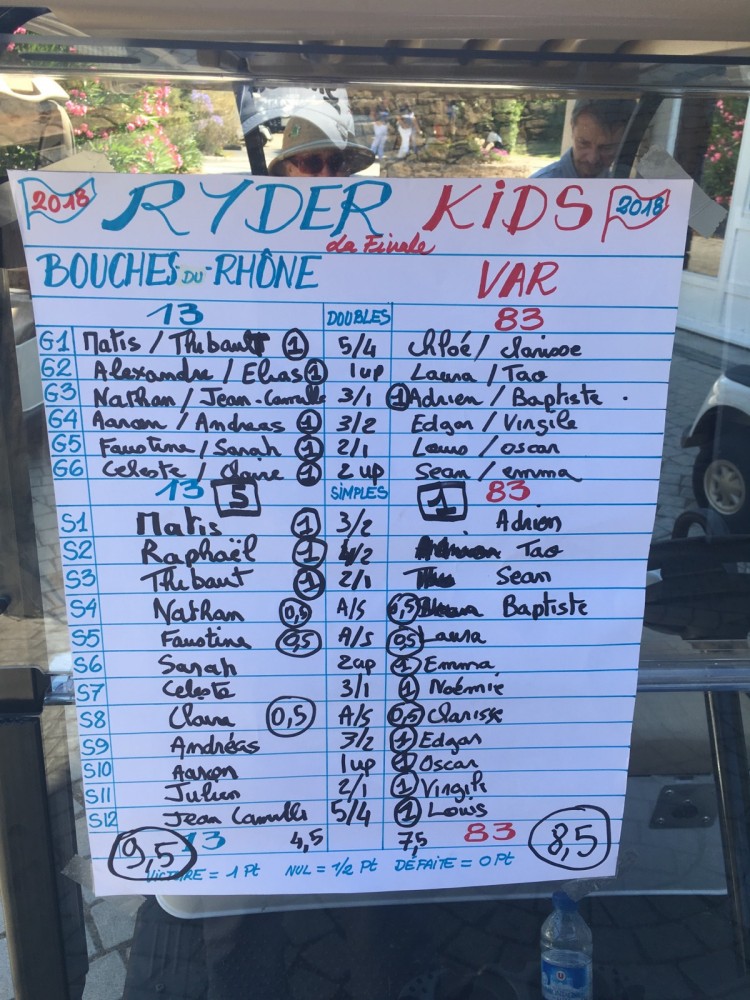 2018 RYDER KIDS 2018
La Finale
BOUCHES-DU-RHÔNE VAR
13 DOUBLES 83
G1 Matis / Thibault 1 5/4 Chloé / Clarisse
G2 Alexandre / Elias 1 1up Laura / Tao
G3 Nathan / Jean-Camille 3/1 1 Adrien / Baptiste .
G4 Aaron / Andreas 1 3/2 Edgar / Virgile
G5 Faustine / Sarah 1 2/1 Louis / Oscar
G6 Celeste / Claire 1 2 up Sean / emma
13 5 SIMPLES 1 83
S1 Matis 1 3/2 Adrien
S2 Raphaël 1 /2 Tao
S3 Thibaut 1 2/1 Sean
S4 Nathan 0,5 A/S 0,5 Baptiste
S5 Faustine 0,5 A/S 0,5 Laura
S6 Sarah 2up 1 Emma
S7 Celeste 3/1 1 Noémie
S8 Claire 0,5 A/S 0,5 Clarisse
S9 Andréas 3/2 1 Edgar
S10 Aaron 1up 1 Oscar
S11 Julien 2/1 1 Virgile
S12 Jean Camille 5/4 1 Louis
9,5 13 4,5 7,5 83 8,5
VICTOIRE = 1 Pt NUL = 1/2 Pt DÉFAITE = 0 Pt